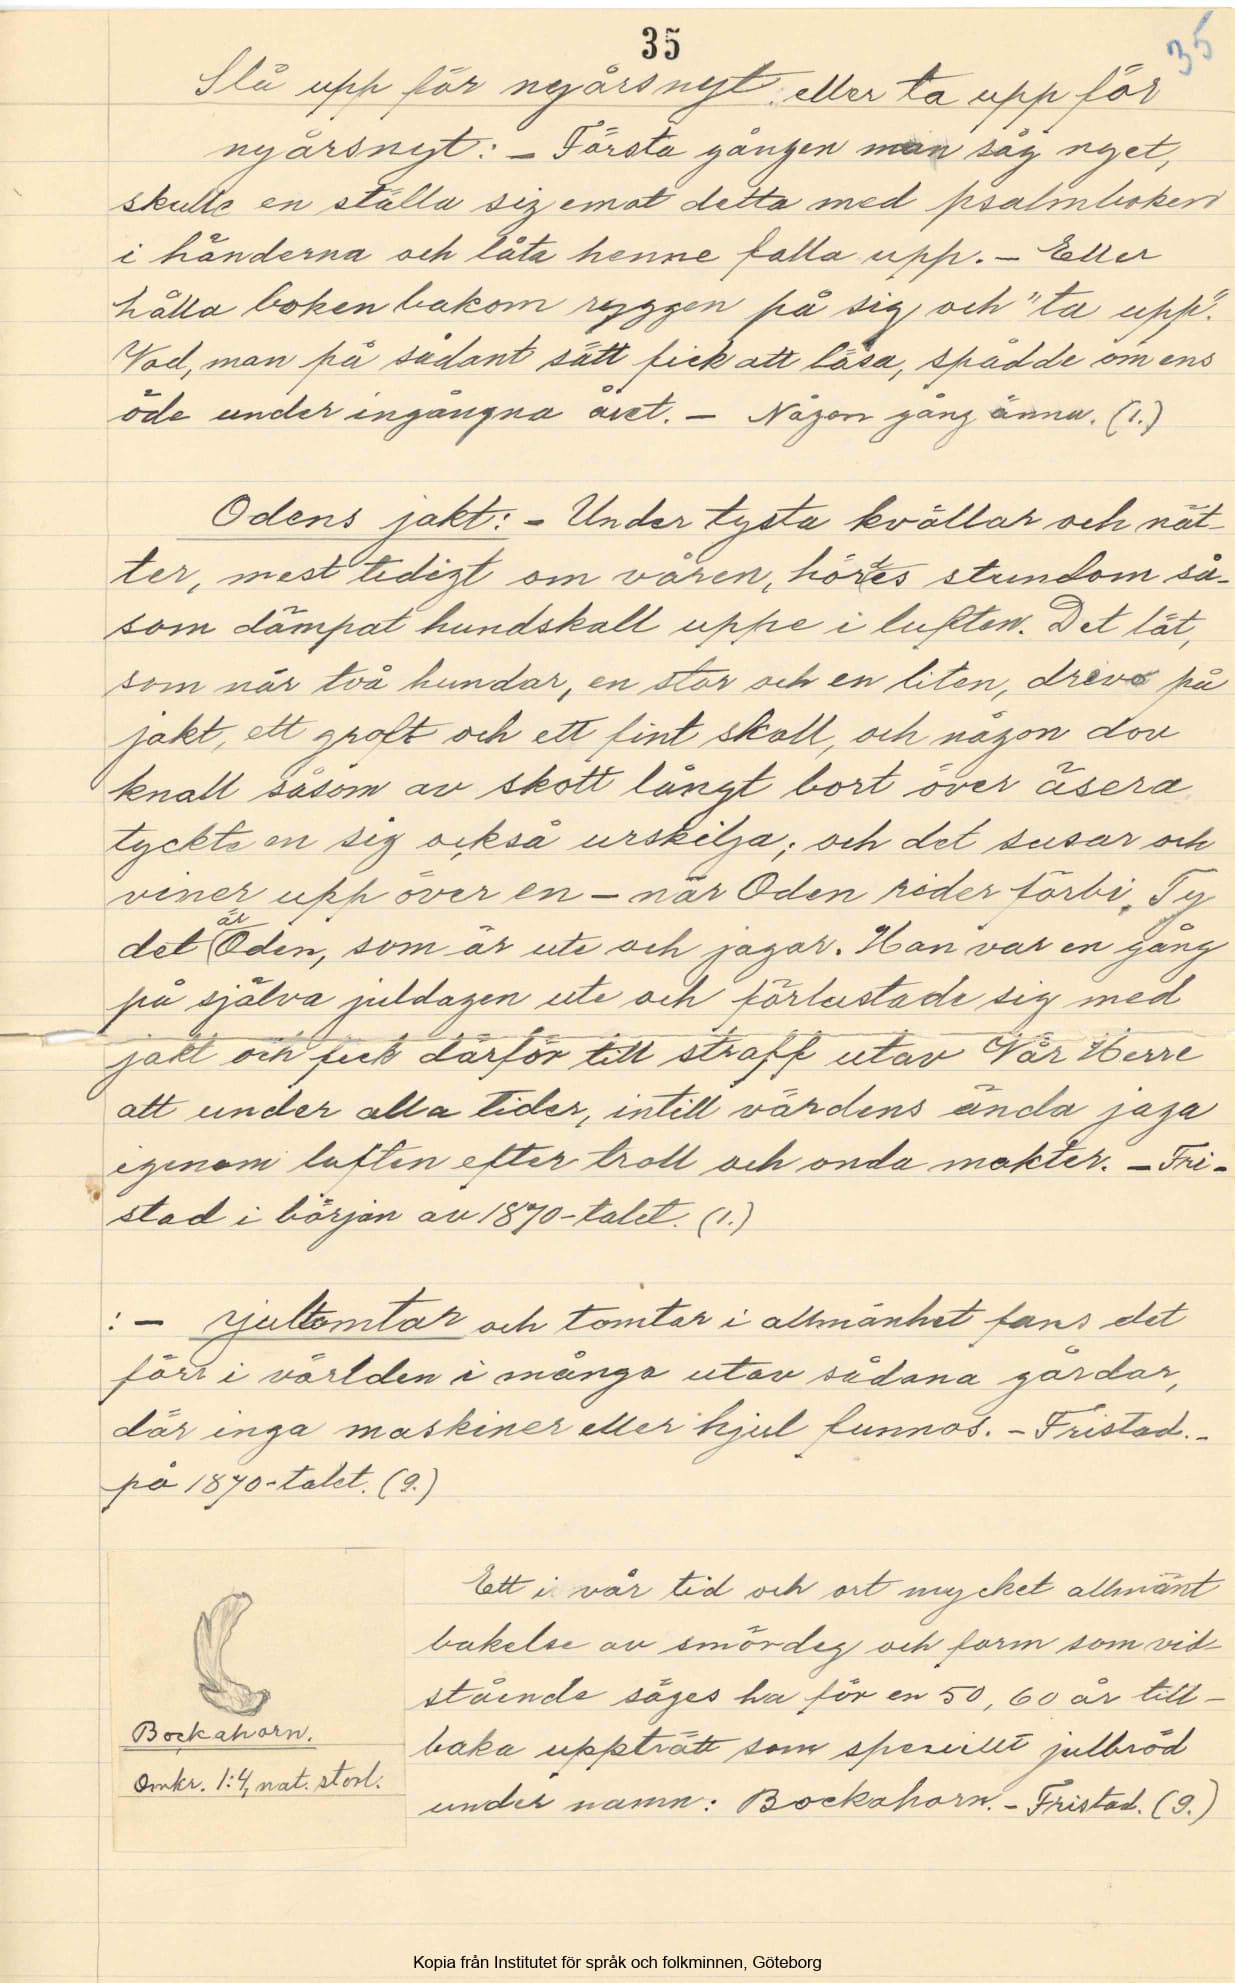 35
35
Slå upp för nyårsnyt eller ta upp för
nyårsnyt: – Första gången man såg nyet,
skulle en ställa sig emot detta med psalmboken
i händerna och låta henne falla upp. – Eller
hålla boken bakom ryggen på sig och "ta upp".
Vad, man på sådant sätt fick att läsa, spådde om ens
öde under ingångna året. – Någon gång ännu. (1.)
Odens jakt: – Under tysta kvällar och nät-
ter, mest tidigt om våren, hördes stundom så-
som dämpat hundskall uppe i luften. Det lät,
som när två hundar, en stor och en liten, drevo på
jakt, ett groft och ett fint skall, och någon dov
knall såsom av skott långt bort över åsera
tyckte en sig också urskilja; och det susar och
viner upp över en – när Oden rider förbi. Ty
det är Oden, som är ute och jagar. Han var en gång
på själva juldagen ute och förlustade sig med
jakt och fick därför till straff utav Vår Herre
att under alla tider, intill värdens ända jaga
igenom luften efter troll och onda makter. – Fri-
stad i början av 1870-talet. (1.)
: – Jultomtar och tomtar i allmänhet fans det
förr i världen i många utav sådana gårdar,
där inga maskiner eller hjul funnos. – Fristad. –
på 1870-talet. (9.)
Ett i vår tid och ort mycket allmänt
bakelse av smördeg och form som vid-
stående säges ha för en 50, 60 år till-
baka uppträtt som speciellt julbröd
under namn: Bockahorn. – Fristad. (9.)
Bockahorn.
Omkr. 1:4, nat. storl.
Kopia från Institutet för språk och folkminnen, Göteborg